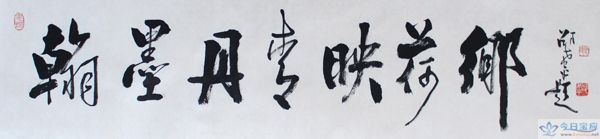 翰墨丹青映荷乡
今日宝应